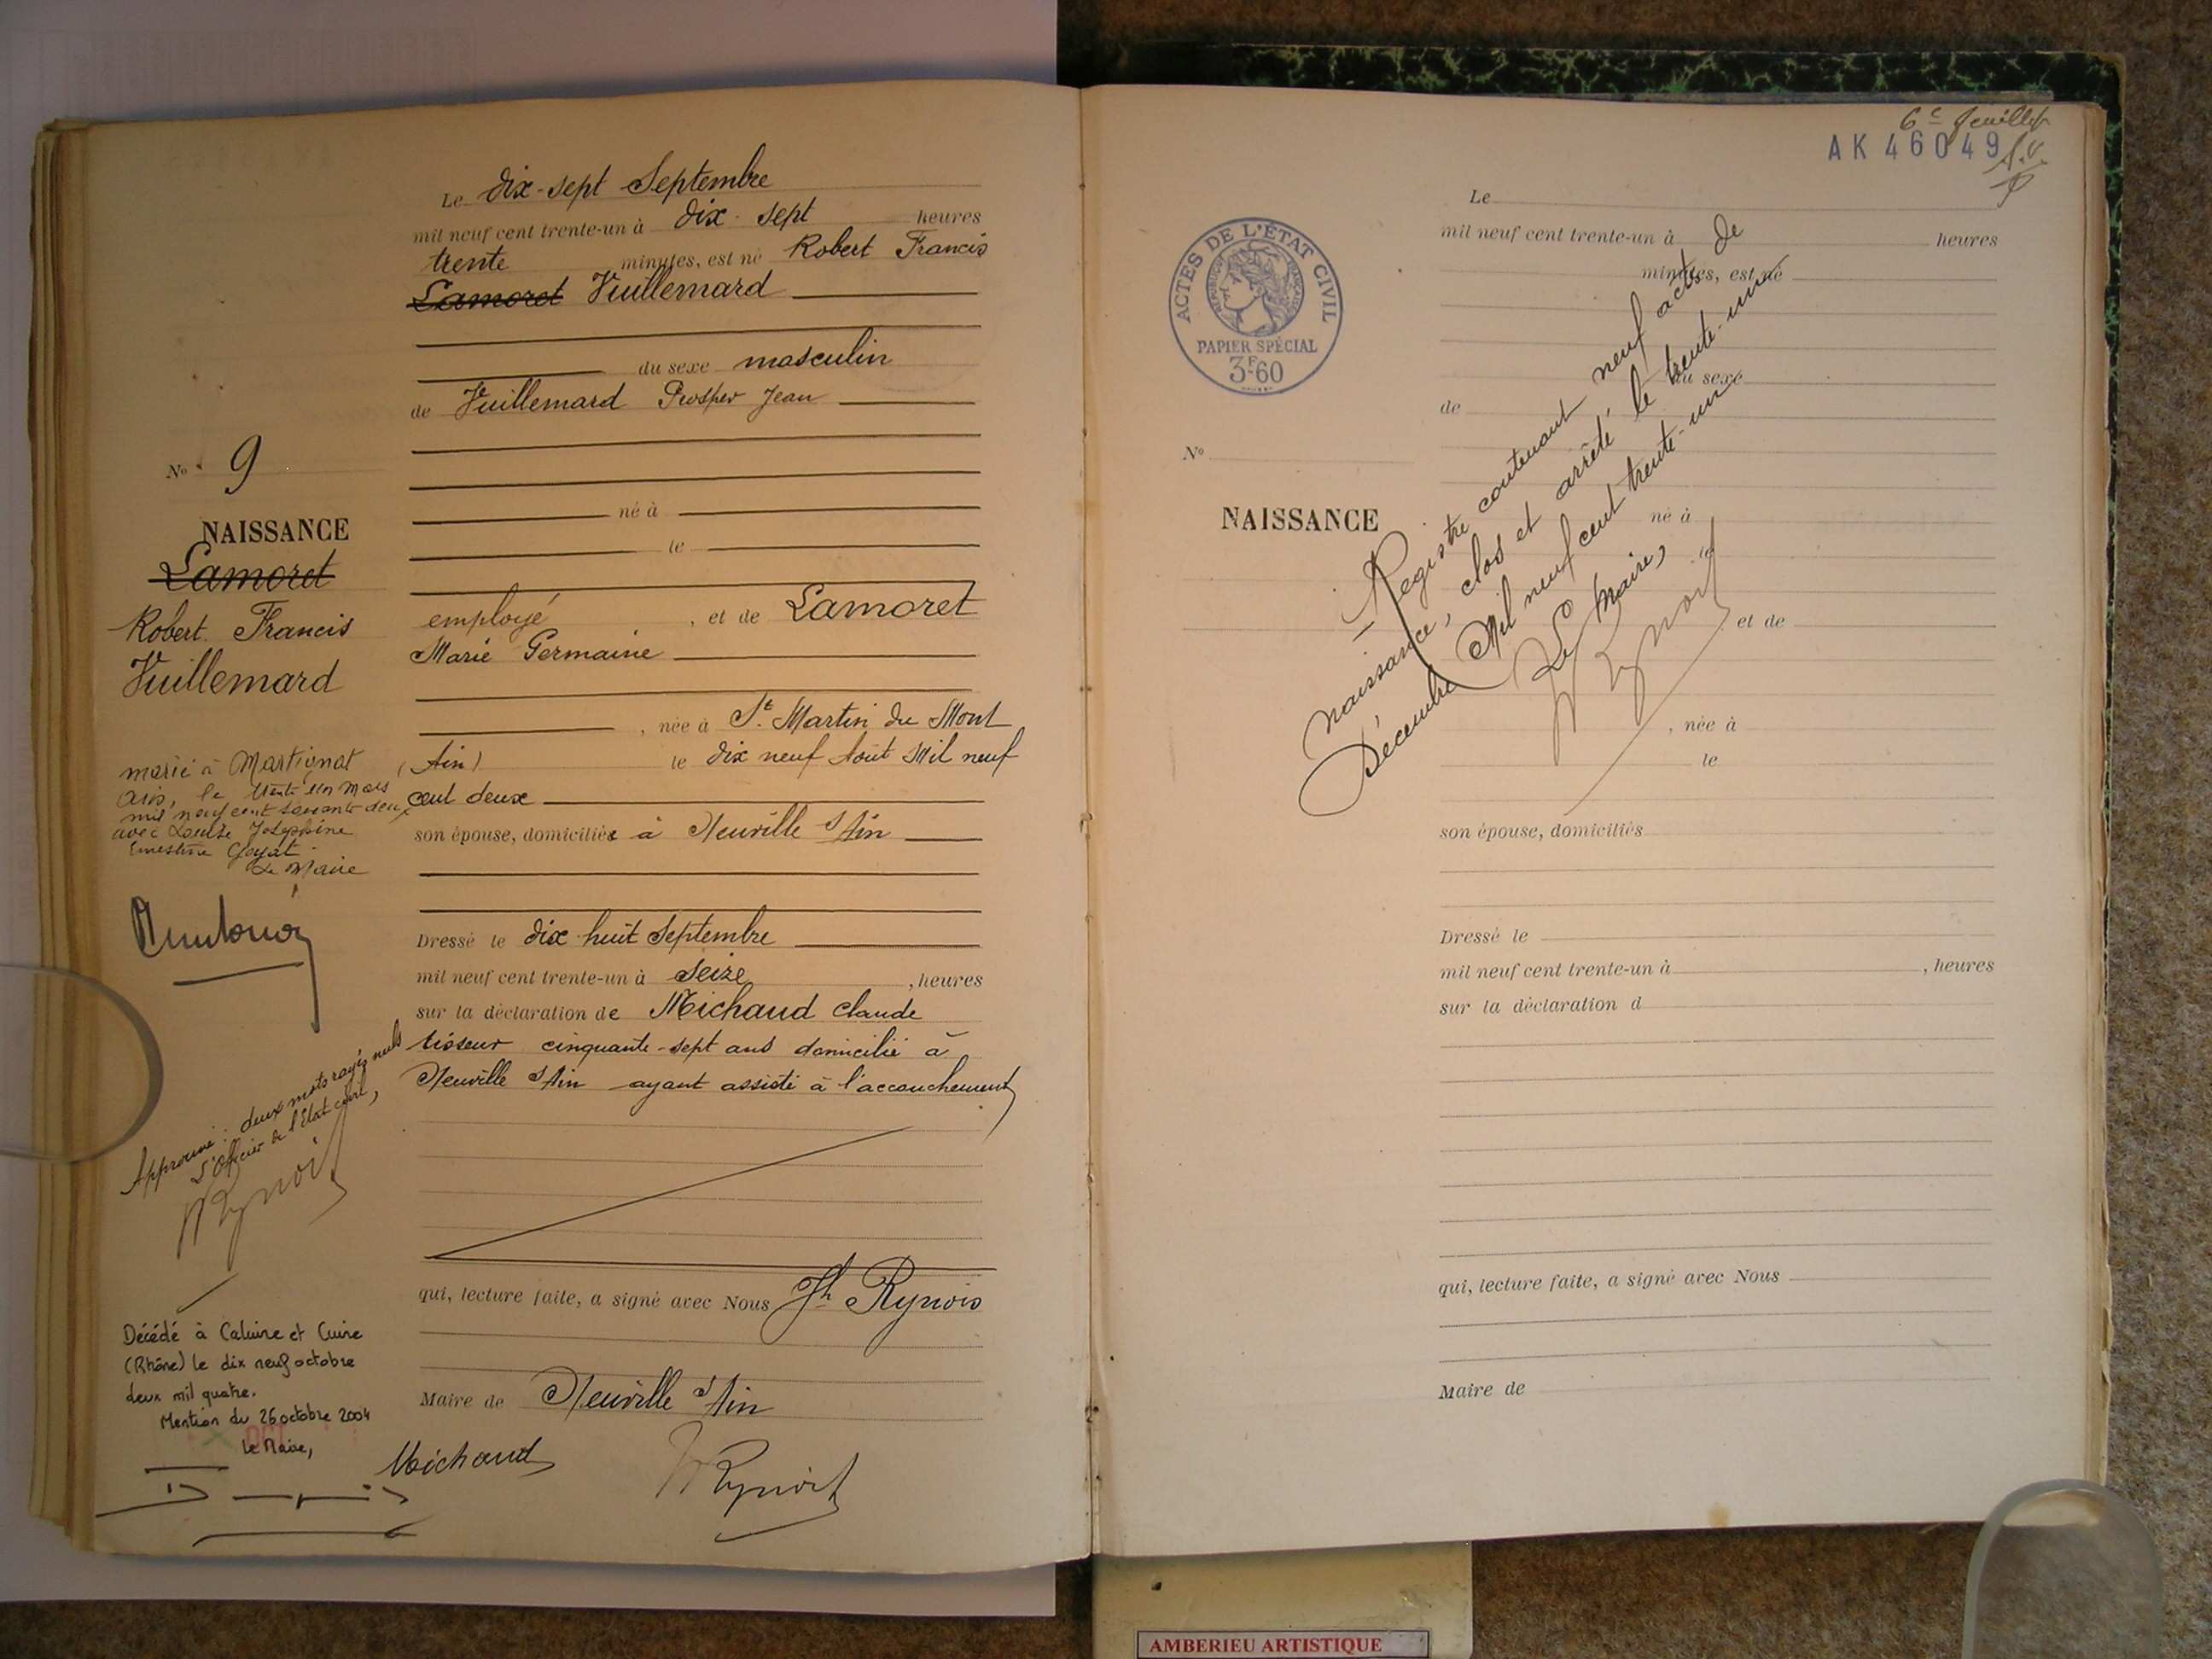 Le dix-sept Septembre
mil neuf cent trente-un à dix-sept heures
trente minutes, est né Robert Francis
Lamoret Vuillemard
du sexe masculin
de Vuillemard Prosper Jean
né à
le
employé, et de Lamoret
Marie Germaine
, née à St. Martin du Mont
(Ain) le dix neuf Août Mil neuf
cent deux
son épouse, domiciliés à Neuville s/Ain
Dressé le dix-huit Septembre
mil neuf cent trente-un à Seize, heures
sur la déclaration de Michaud Claude
cinquante-sept ans domicilié à
Neuville s/Ain ayant assisté à l'accouchement
qui, lecture faite, a signé avec Nous Jh Rynois
Maire de Neuville s/Ain
Michaud
No 9
NAISSANCE
Lamoret
Robert Francis
Vuillemard
marié à Martignat
Ain, le trente un Mars
mil neuf cent soixante deux
avec Louise Joséphine
Ernestine Goyat
Le Maire
Approuvé: deux mots rayés nuls
L'Officier de l'Etat civil,
Décédé à Caluire et Cuire
(Rhône) le dix neuf octobre
deux mil quatre.
Mention du 26 octobre 2004
Le Maire,
6e feuillet
AK 46049
ACTES DE L'ÉTAT CIVIL
RÉPUBLIQUE FRANÇAISE
PAPIER SPÉCIAL
3F60
No
NAISSANCE
Le
mil neuf cent trente-un à heures
minutes, est né
du sexe
de
né à
le
et de
, née à
le
son épouse, domiciliés
Dressé le
mil neuf cent trente-un à , heures
sur la déclaration d
qui, lecture faite, a signé avec Nous
Maire de
Registre contenant neuf actes de
naissance, clos et arrêté le trente-un
Décembre Mil neuf cent trente-un
Le Maire,
AMBERIEU ARTISTIQUE